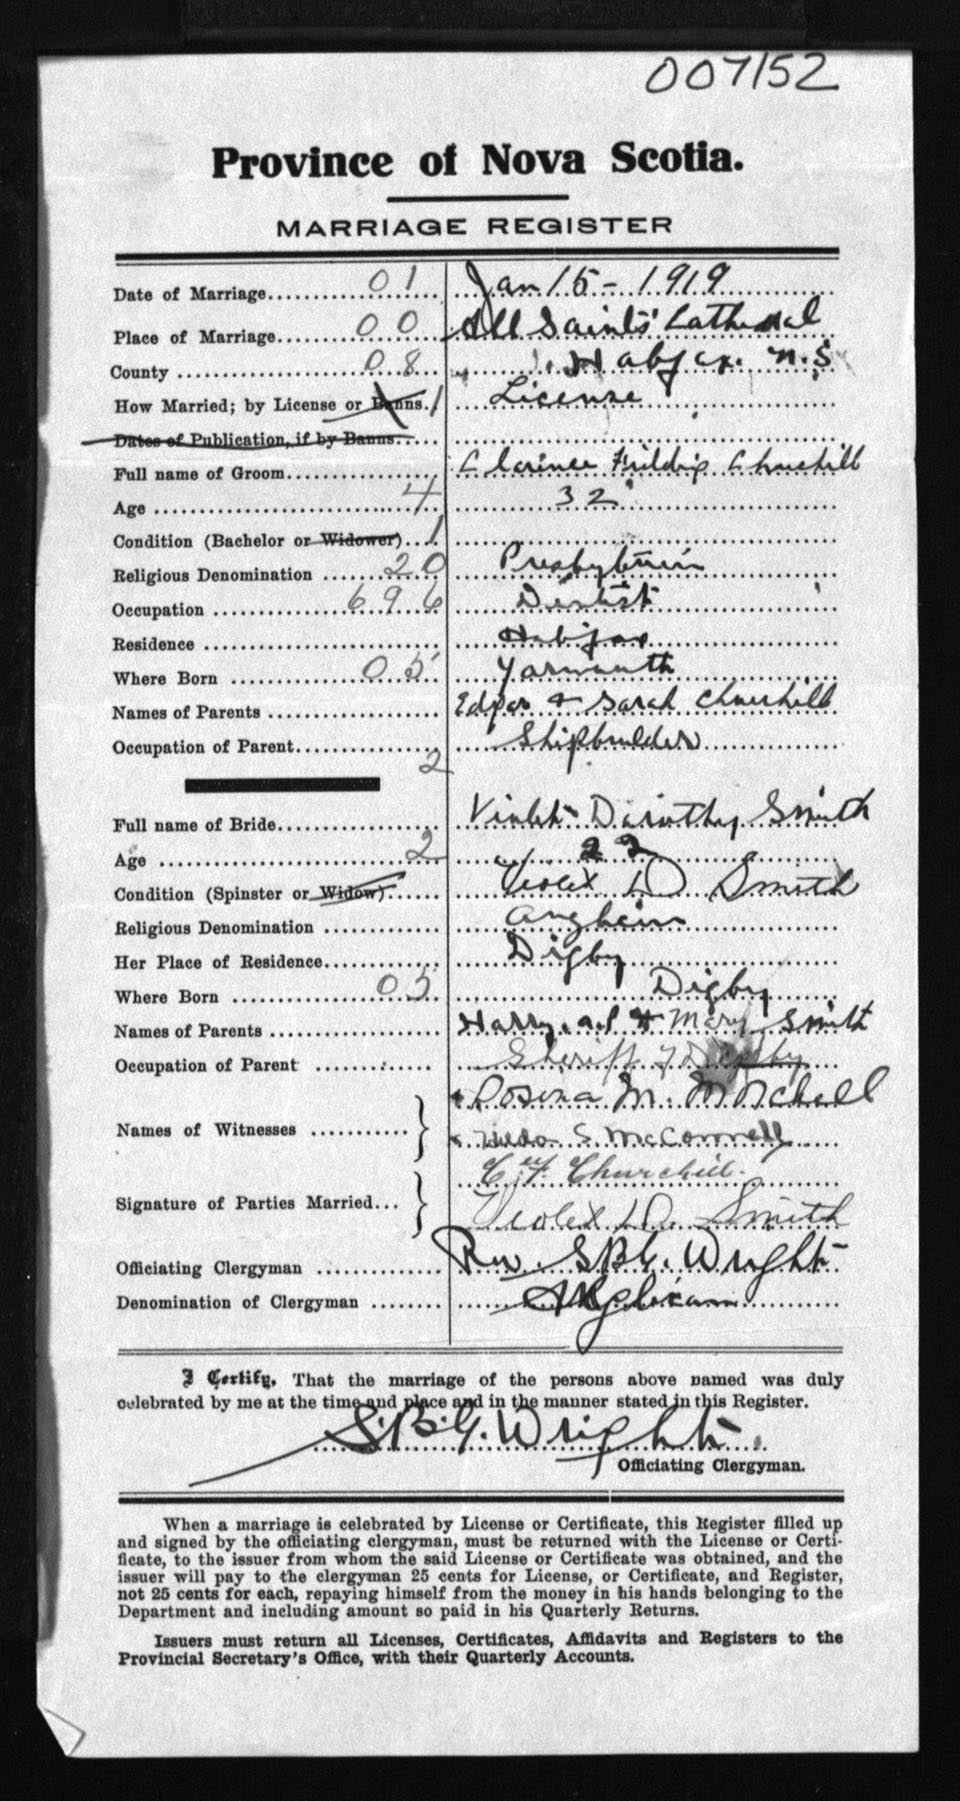 007152
Province of Nova Scotia.
MARRIAGE REGISTER
Date of Marriage 01 Jan 15 - 1919
Place of Marriage 00 All Saints' Cathedral
County 08 Halifax. N.S
How Married; by License or Banns. 1 License
Dates of Publication, if by Banns.
Full name of Groom Clarence Fielding Churchill
Age 4 32
Condition (Bachelor or Widower) 1
Religious Denomination 20 Presbyterian
Occupation 696 Dentist
Residence Halifax
Where Born 05 Yarmouth
Names of Parents Edgar & Sarah Churchill
Occupation of Parent Shipbuilder
2
Full name of Bride Violet Dorothy Smith
Age 2 22
Condition (Spinster or Widow) Violet D Smith
Religious Denomination Anglican
Her Place of Residence Digby
Where Born 05 Digby
Names of Parents Harry & Mary Smith
Occupation of Parent Sheriff of Digby
Rosena M. Mitchell
Names of Witnesses
Hilda S. McConnell
C. F. Churchill.
Signature of Parties Married
Violet D. Smith
Officiating Clergyman Rev. S.B.G. Wright
Denomination of Clergyman Anglican
I Certify, That the marriage of the persons above named was duly
celebrated by me at the time and place and in the manner stated in this Register.
S.B.G. Wright.
Officiating Clergyman.
When a marriage is celebrated by License or Certificate, this Register filled up
and signed by the officiating clergyman, must be returned with the License or Certi-
ficate, to the issuer from whom the said License or Certificate was obtained, and the
issuer will pay to the clergyman 25 cents for License, or Certificate, and Register,
not 25 cents for each, repaying himself from the money in his hands belonging to the
Department and including amount so paid in his Quarterly Returns.
Issuers must return all Licenses, Certificates, Affidavits and Registers to the
Provincial Secretary's Office, with their Quarterly Accounts.